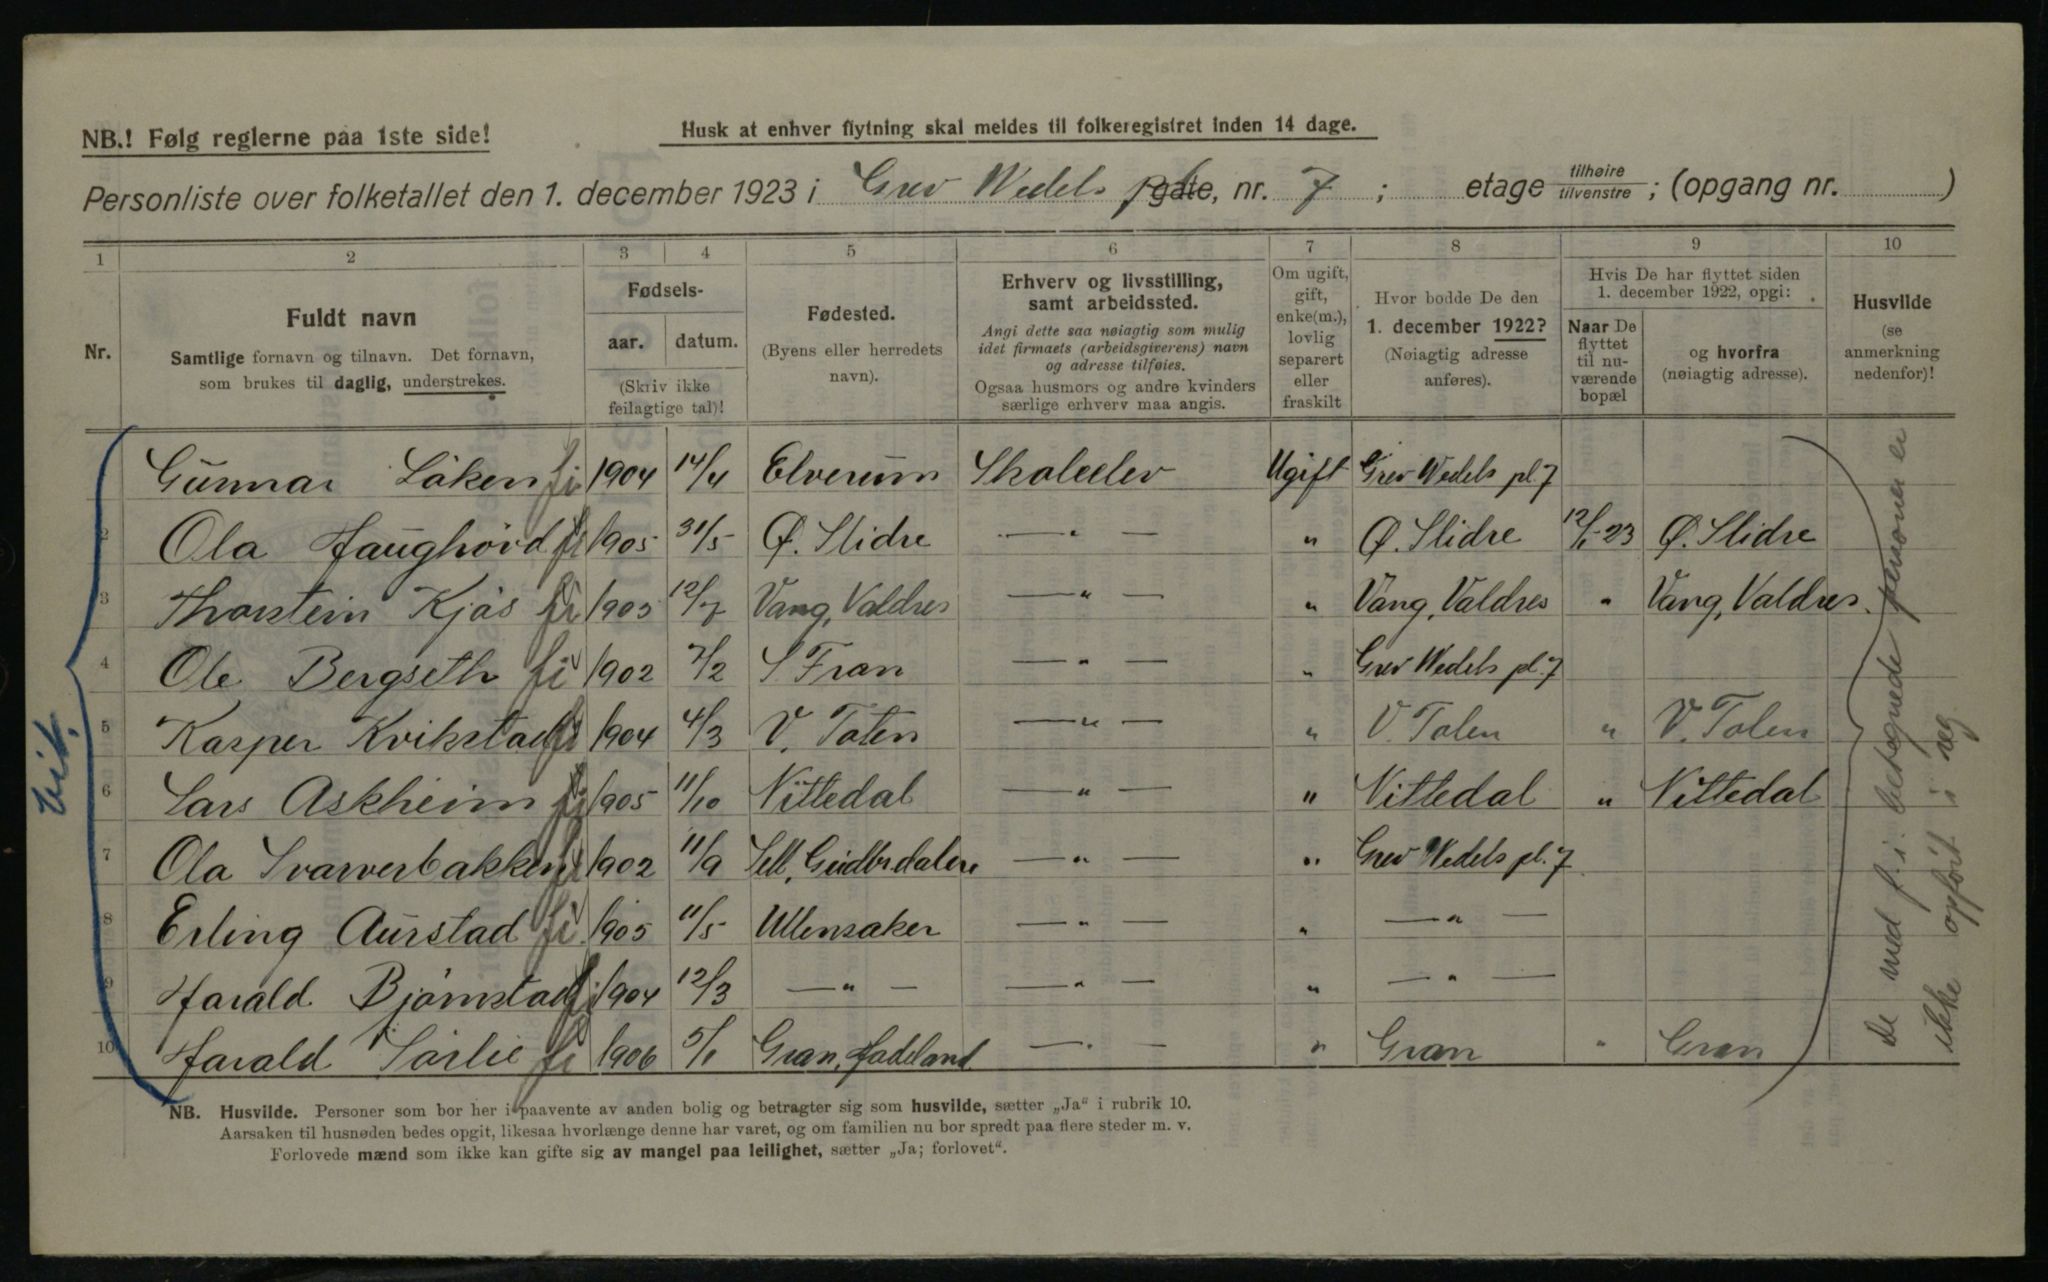 NB.! Følg reglerne paa 1ste side!
Husk at enhver flytning skal meldes til folkeregistret inden 14 dage.
Personliste over folketallet den 1. december 1923 i Grev Wedels pl. gate, nr. 7 ; etage tilhøire tilvenstre ; (opgang nr. )
1 2 3 4 5 6 7 8 9 10
Nr.
Fuldt navn
Samtlige fornavn og tilnavn. Det fornavn,
som brukes til daglig, understrekes.
Fødsels-
aar. datum.
(Skriv ikke
feilagtige tal)!
Fødested.
(Byens eller herredets
navn).
Erhverv og livsstilling,
samt arbeidssted.
Angi dette saa nøiagtig som mulig
idet firmaets (arbeidsgiverens) navn
og adresse tilføies.
Ogsaa husmors og andre kvinders
særlige erhverv maa angis.
Om ugift,
gift,
enke(m.),
lovlig
separert
eller
fraskilt
Hvor bodde De den
1. december 1922?
(Nøiagtig adresse
anføres).
Hvis De har flyttet siden
1. december 1922, opgi:
Naar De
flyttet
til nu-
værende
bopæl
og hvorfra
(nøiagtig adresse).
Husvilde
(se
anmerkning
nedenfor)!
Gunnar Löken fi 1904 14/4 Elverum Skoleelev Ugift Grev Wedels pl. 7
2 Ola Haughövd fi 1905 31/5 Ø. Slidre — " — " Ø. Slidre 12/1-23 Ø. Slidre
3 Thorstein Kjös fi 1905 12/7 Vang, Valdres — " — " Vang, Valdres " Vang, Valdres.
4 Ole Bergseth fi 1902 7/2 S Fran — " — " Grev Wedels pl. 7
5 Kasper Kvikstad fi 1904 4/3 V. Toten — " — " V. Toten " V. Toten
6 Lars Askheim fi 1905 11/10 Nittedal — " — " Nittedal " Nittedal
7 Ola Svarverbakken fi 1902 11/9 Sell, Gudbrdalen — " — " Grev Wedels pl. 7
8 Erling Aurstad fi 1905 11/5 Ullensaker — " — " — " —
9 Harald Björnstad fi 1904 12/3 — " — — " — " — " —
10 Harald Sörlie fi 1906 5/1 Gran, Hadeland — " — " Gran " Gran
De med f. i. betegnede personer er
ikke opført i reg
NB. Husvilde. Personer som bor her i paavente av anden bolig og betragter sig som husvilde, sætter „Ja“ i rubrik 10.
Aarsaken til husnøden bedes opgit, likesaa hvorlænge denne har varet, og om familien nu bor spredt paa flere steder m. v.
Forlovede mænd som ikke kan gifte sig av mangel paa leilighet, sætter „Ja; forlovet“.